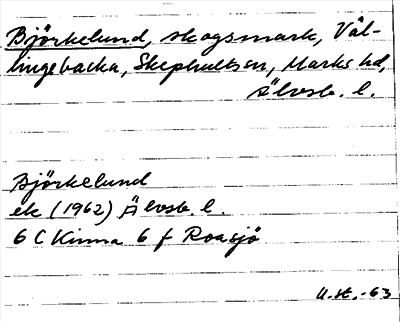 Björkelund, skogsmark, Väl-
lingebacka, Skephultssn, Marks hd,
Älvsb. l.
Björkelund
ek (1962) Älvsb. l.
6 C Kinna 6 f Roasjö
U.st. -63